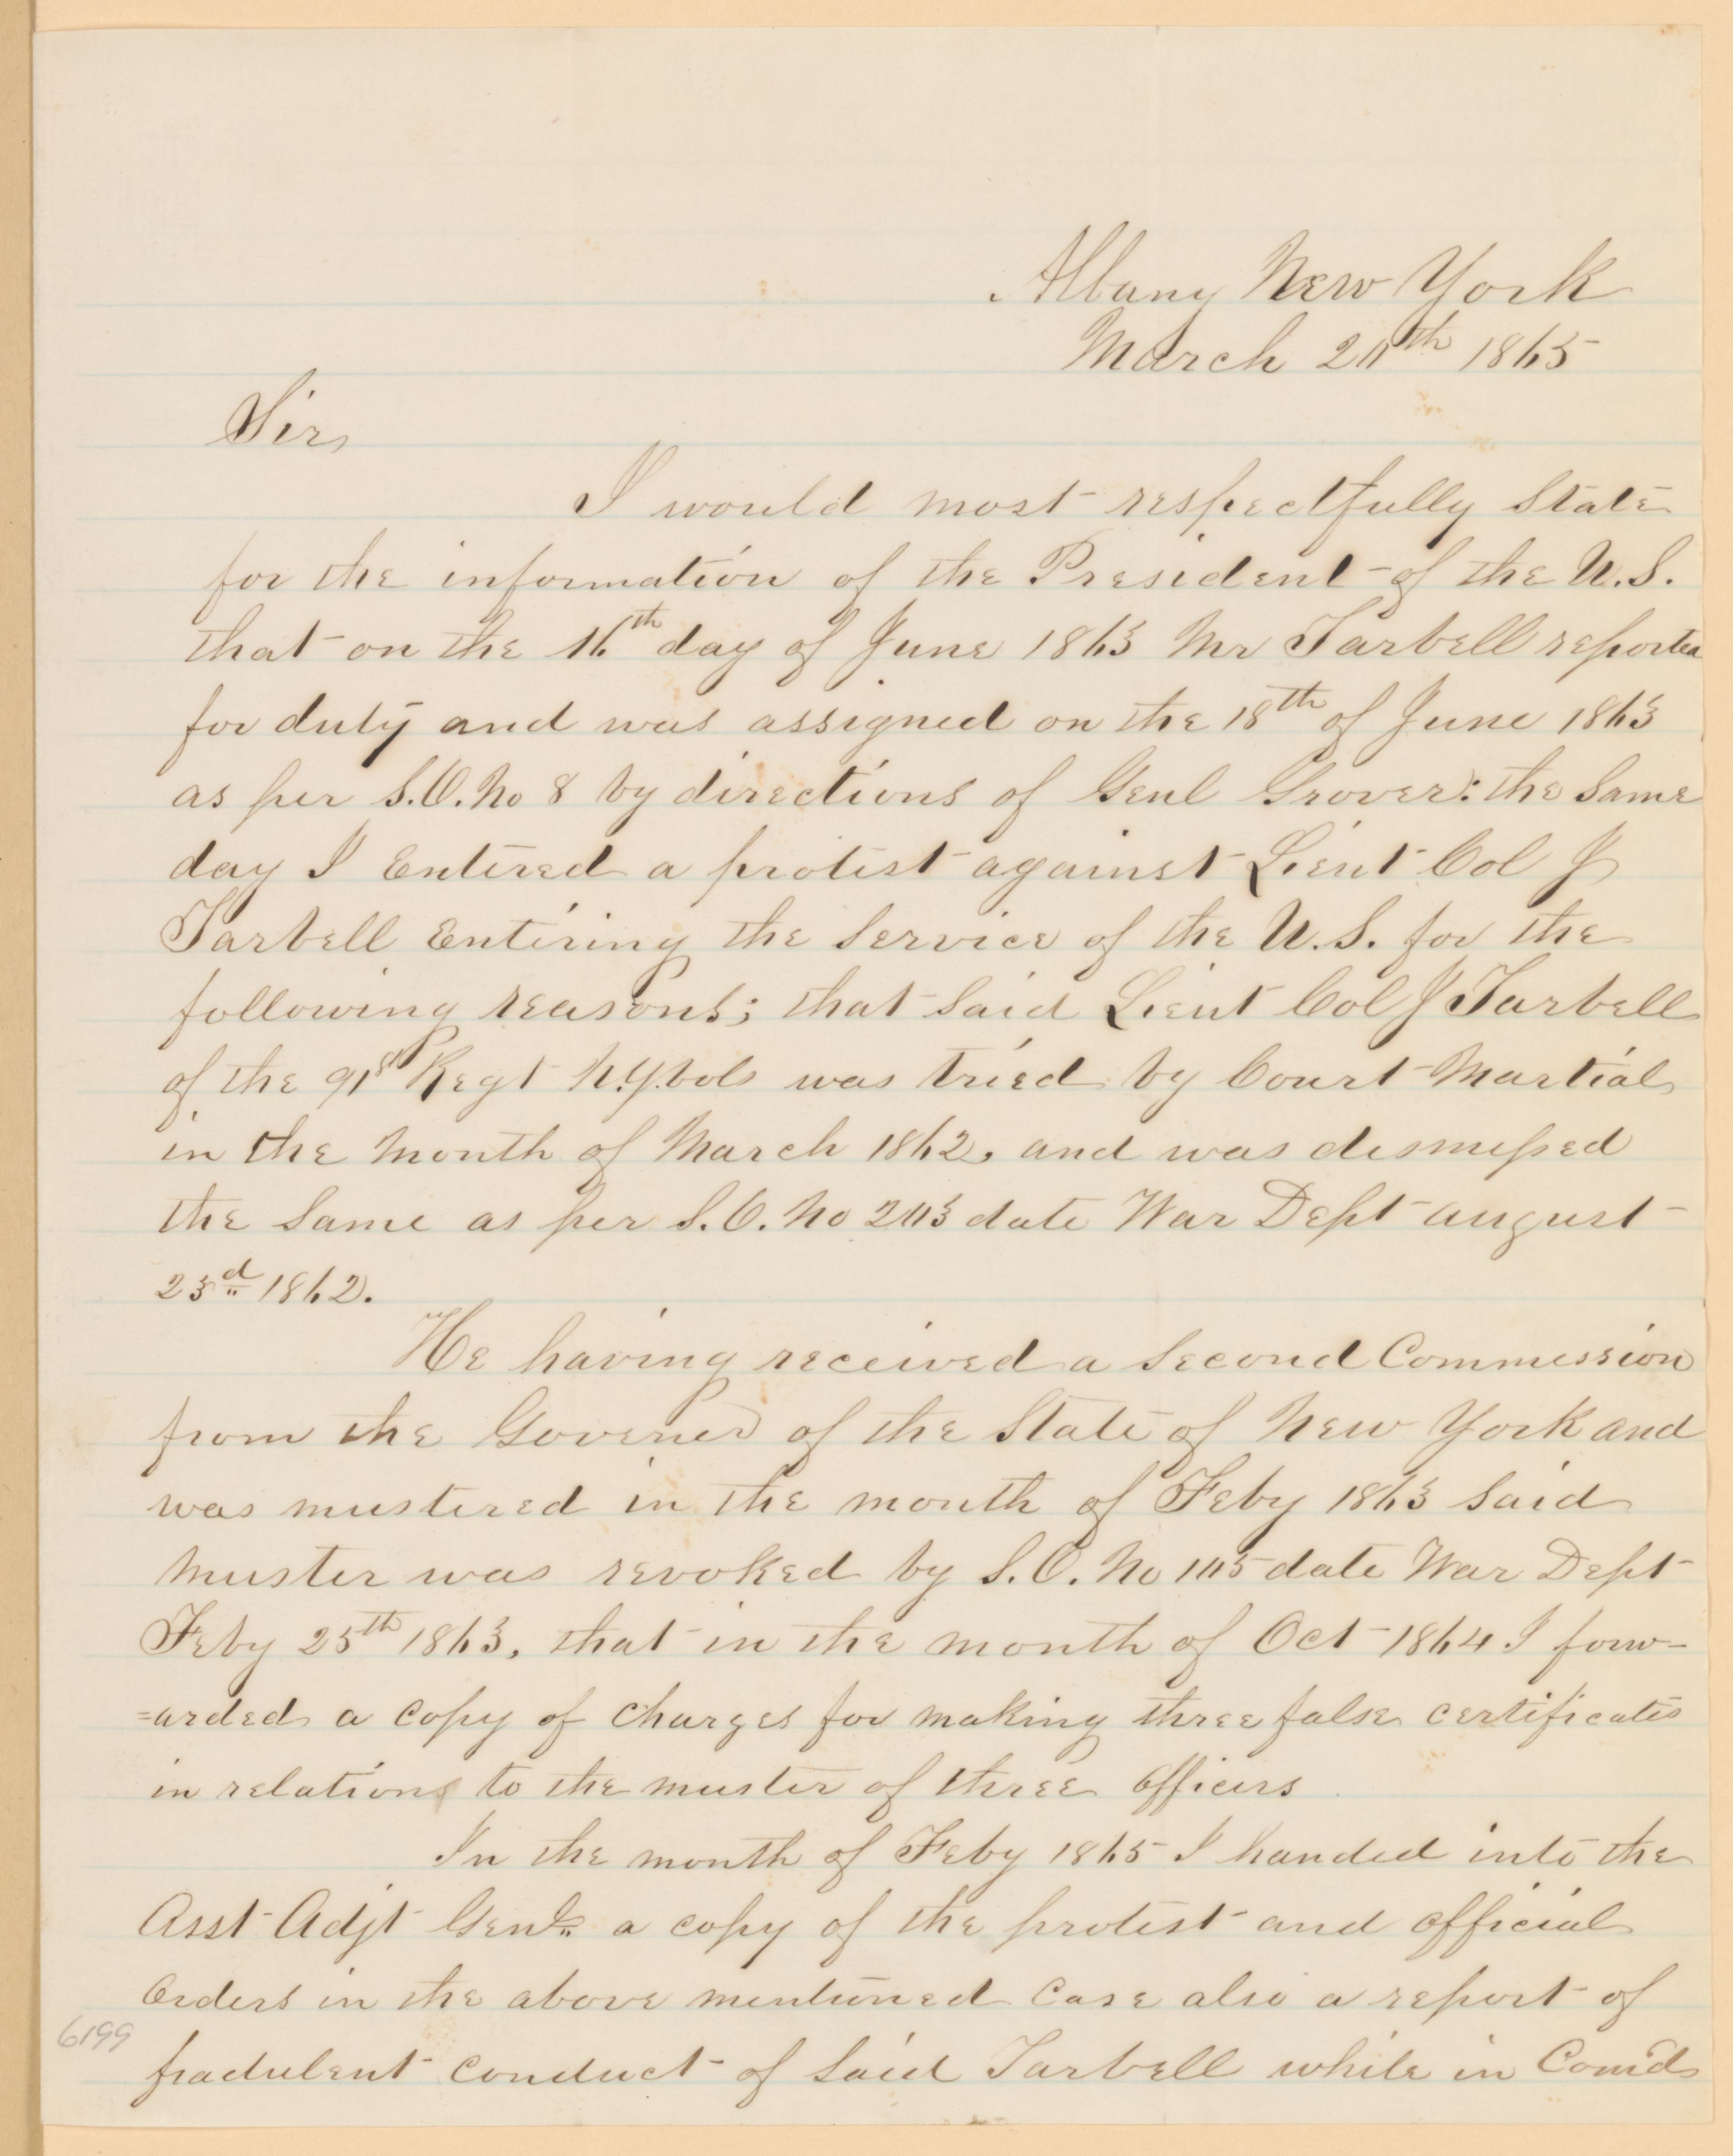 Albany New York
March 20th 1865
Sir
I would most respectfully State
for the information of the President of the U.S.
that on the 16th day of June 1863 Mr Tarbell reported
for duty and was assigned on the 18th of June 1863
as per S.O. No 8 by directions of Genl Grover: the Same
day I Entered a protest against Lieut Col J
Tarbell Entering the Service of the U.S. for the
following reasons; that Said Lieut Col J Tarbell
of the 91st Regt N.Y. Vols was tried by Court Martial
in the Month of March 1862, and was dismissed
the Same as per S.O. No 203 date War Dept august
23d 1862.
He having received a Second Commission
from the Governer of the State of New York and
was mustered in the month of Feby 1863 Said
Muster was revoked by S.O. No 105 date War Dept
Feby 25th 1863, that in the month of Oct 1864 I forw-
=arded a copy of Charges for making three false certificates
in relations to the muster of three Officers
In the month of Feby 1865 I handed into the
Asst Adjt Genl a copy of the protest and official
Orders in the above mentioned Case also a report of
fradulent conduct of Said Tarbell while in Com'd
6199